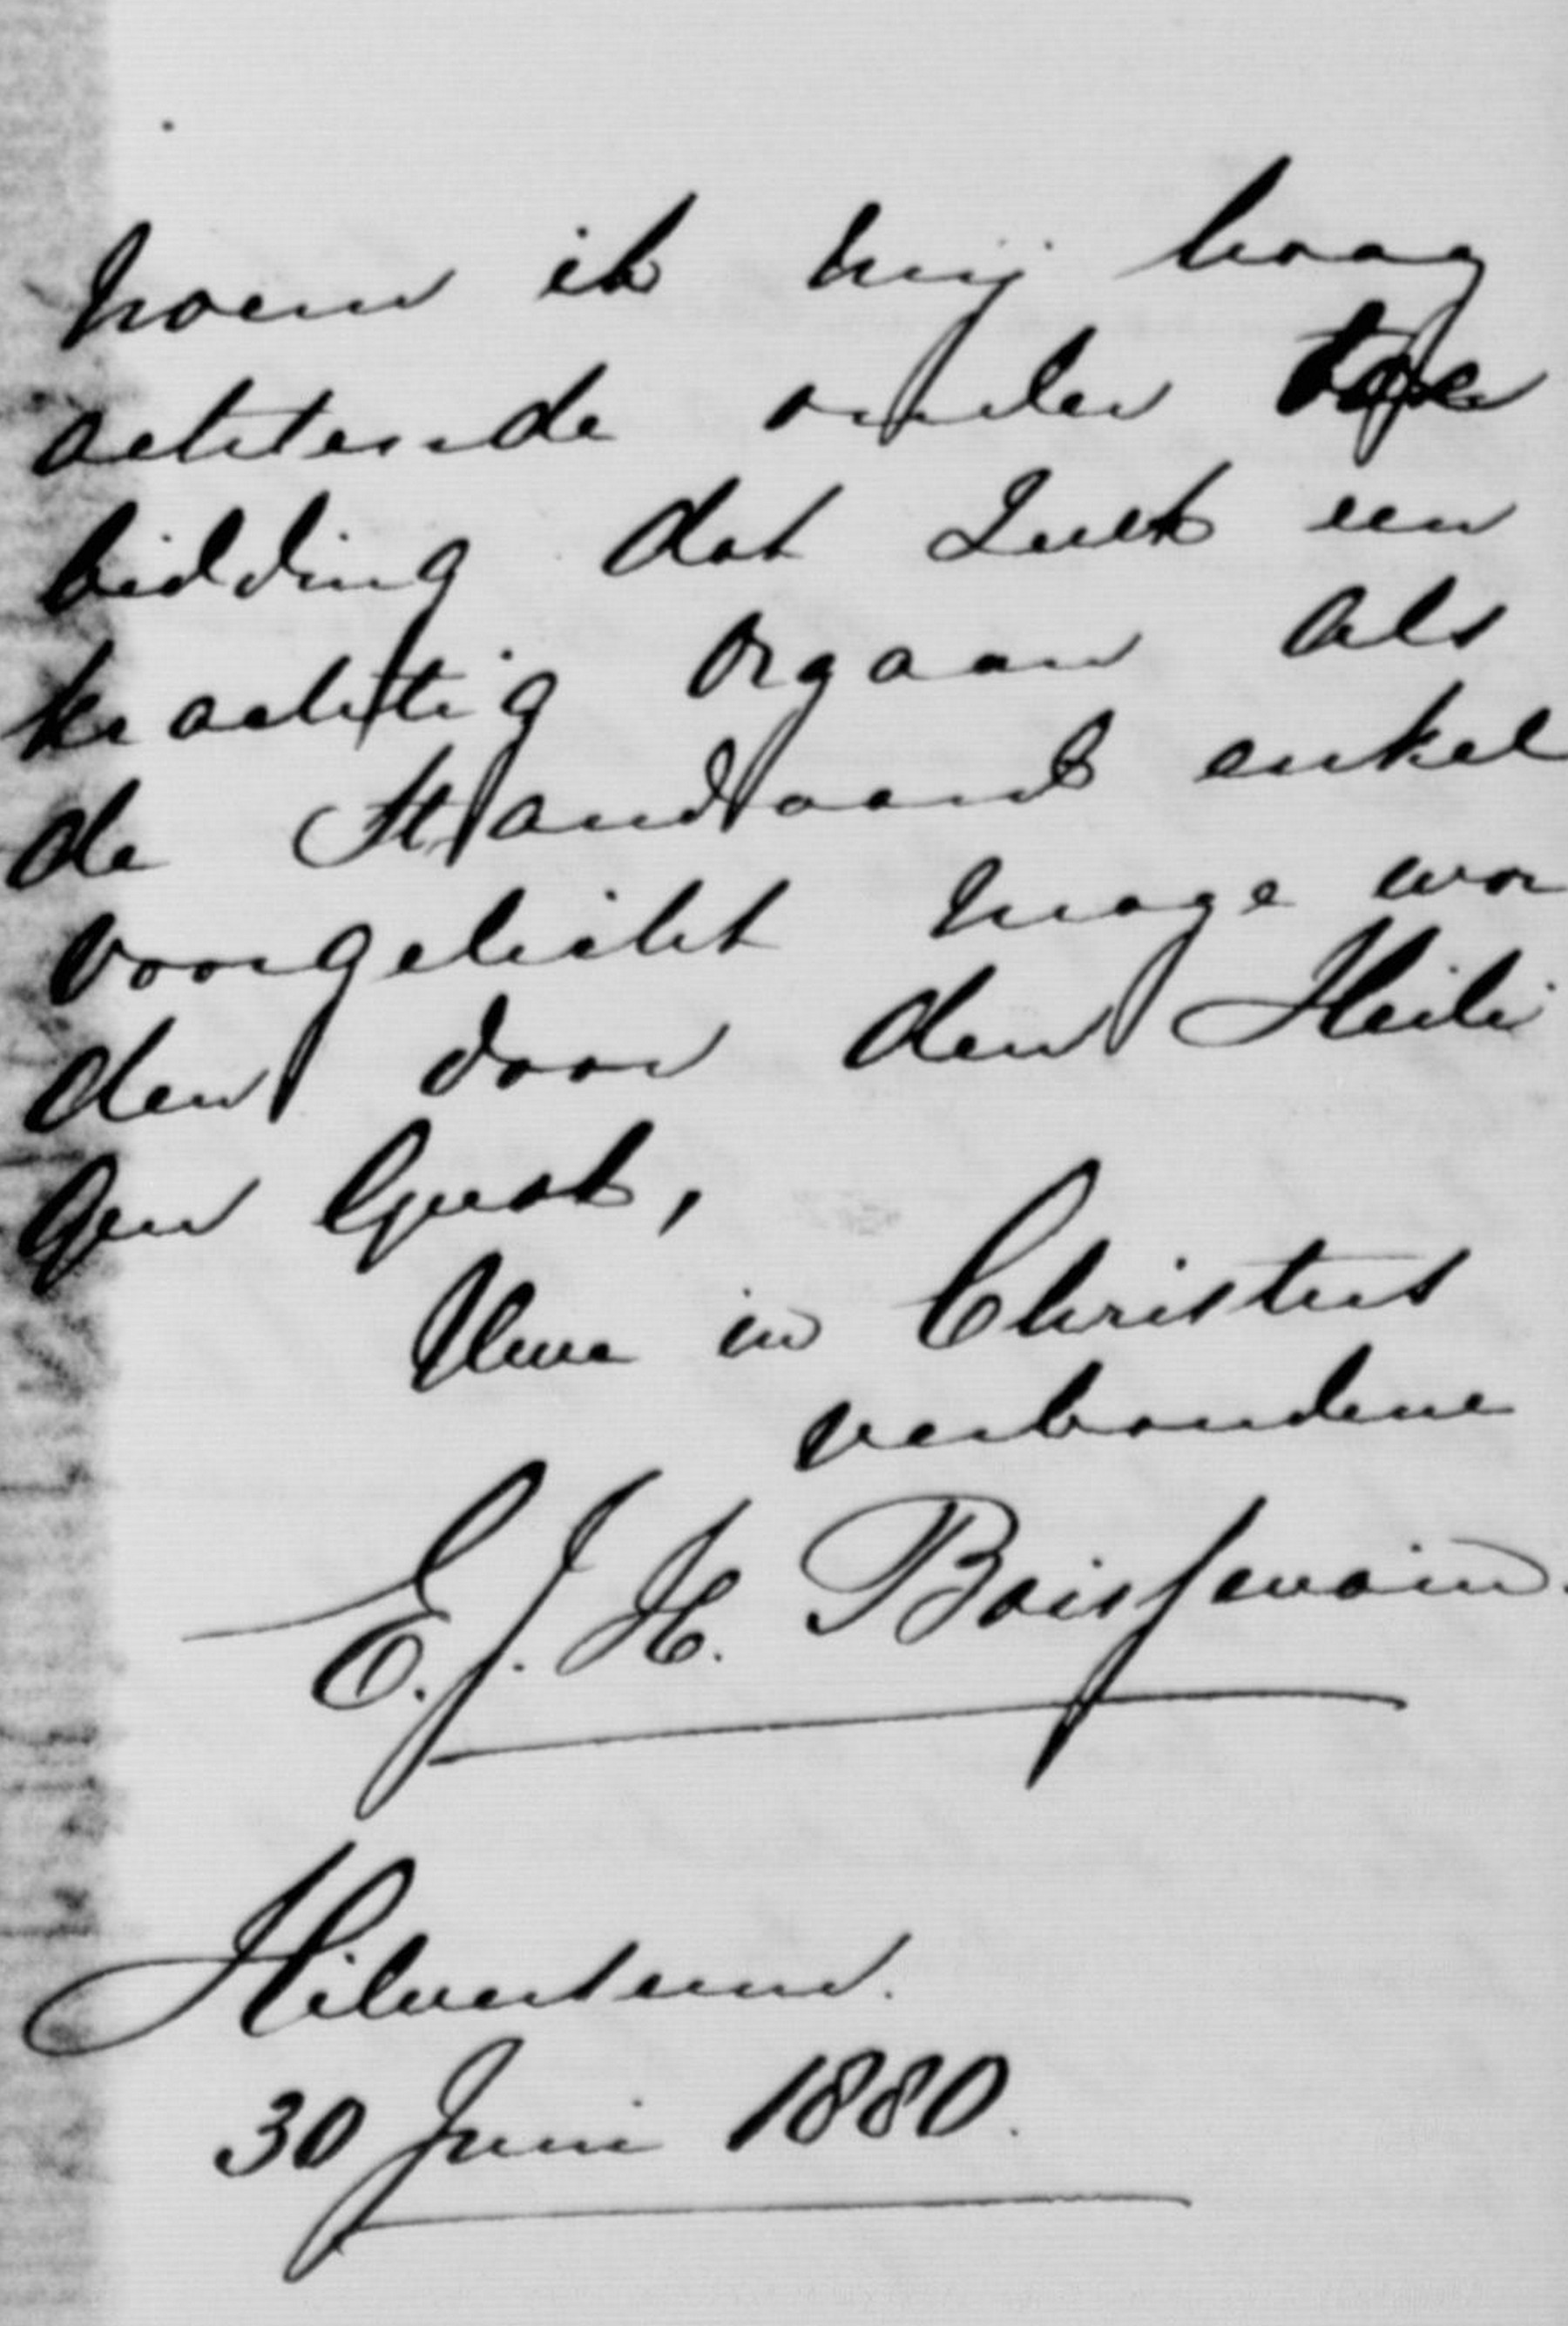 noem ik mij hoog
achtende onder toe
bidding dat zulk een
krachtig orgaan als
de Standaard enkel
voorgelicht moge wor
den door den Heili
gen Geest,
Uwe in Christus
verbondene
E. J. H. Boissevain.
Hilversum.
30 Juni 1880.